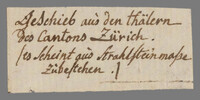 Geschieb aus den thälern
des Cantons Zürich.
(es scheint aus Strahlsteinmaße
zu bestehen.)